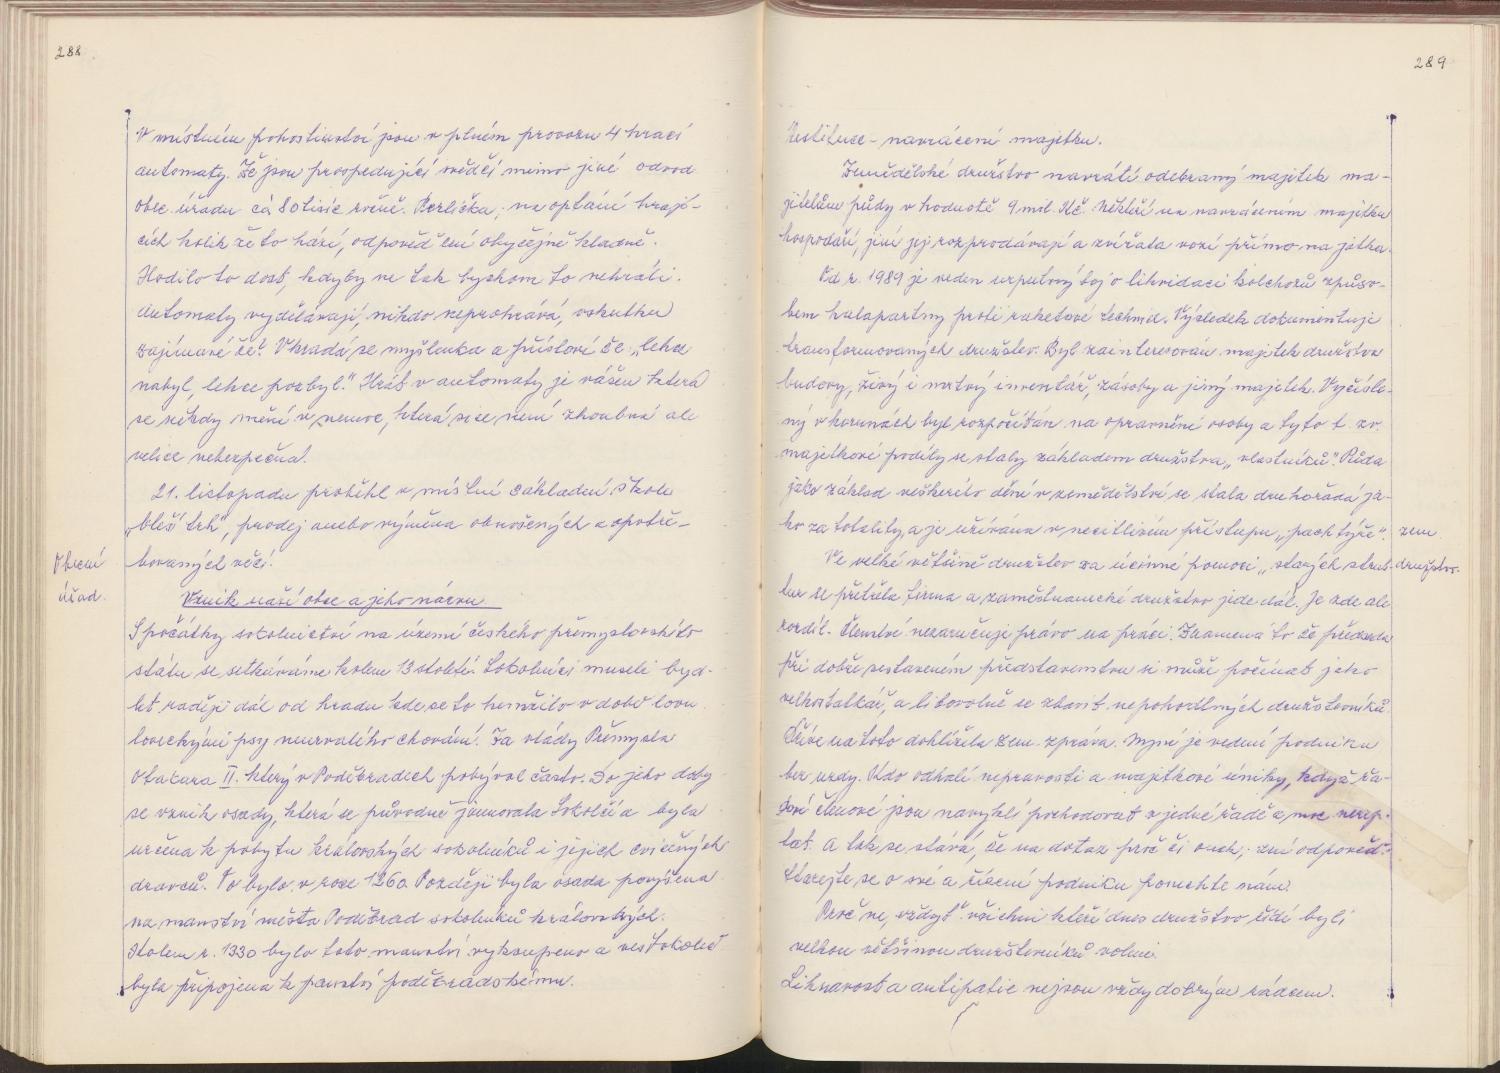 288
V místním pohostinství jsou v plném provozu 4 hrací
automaty. Že jsou prosperující svědčí mimo jiné odvod
obec. úřadu cá 80 tisíc ročně. Perlička; na optání hrají-
cích kolik že to hází, odpověď zní obyčejně kladně.
Hodilo to dost, kdyby ne tak bychom to nehráli.
Automaty vydělávají, nikdo neprohrává, vskutku
zajímavé že? Vkrádá se myšlenka a přísloví že „lehce
nabyl, lehce pozbyl." Hrát v automaty je vášeň která
se někdy mění v nemoc, která sice není zhoubná ale
velice nebezpečná.
21. listopadu proběhl v místní základní škole
„bleší trh", prodej anebo výměna obnošených a opotře-
bovaných věcí.
Obecní
úřad.
Vznik naší obce a jeho názvu
S počátky sokolnictví na území českého přemyslovského
státu se setkáváme kolem 13 století. Sokolníci museli byd-
let raději dál od hradu kde se to hemžilo v době lovu
loveckými psy neurvalého chování. Za vlády Přemysla
Otakara II. který v Poděbradech pobýval často. Do jeho doby
se vznik osady, která se původně jmenovala Sokolčí a byla
určena k pobytu královských sokolníků i jejich cvičených
dravců. To bylo v roce 1260. Později byla osada povýšena
na manství města Poděbrad sokolníků královských.
Kolem r. 1330 bylo toto manství vykoupeno a ves Sokoleč
byla připojena k panství poděbradskému.
289
Restituce – navrácení majetku.
Zemědělské družstvo navrátí odebraný majetek ma-
jitelům půdy v hodnotě 9 mil. Kč. Někteří na navráceném majetku
hospodaří, jiní jej rozprodávají a zvířata vozí přímo na jatka.
Od r. 1989 je veden urputný boj o likvidaci kolchozů způso-
bem halapartny proti raketové technid. Výsledek dokumentuje
transformovaných družstev. Byl zainteresován majetek družstva
budovy, živý i mrtvý inventář, zásoby a jiný majetek. Vyčísle-
ný v korunách byl rozpočítán na oprávněné osoby a tyto t. zv.
majetkové podíly se staly základem družstva „vlastníků". Půda
jako základ veškerého dění v zemědělství se stala druhořadá ja-
ko za totality, a je užívána v necitlivém přístupu „pachtýře".
zem.
družstvo.
Ve velké většině družstev za účinné pomoci „starých struk-
tur se přetřela firma a zaměstnanecké družstvo jede dál. Je zde ale
rozdíl. Členství nezaručuje právo na práci. Znamená to že předseda
při dobře sestaveném představenstvu si může počínat jako
velkostatkář, a libovolně se zbavit nepohodlných družstevníků.
Dříve na toto dohlížela zem. zpráva. Nyní je vedení podniku
bez uzdy. Kdo odhalí nepravosti a majetkové úniky, když řa-
doví členové jsou navyklí pochodovat v jedné řadě a moc nerep-
tat. A tak se stává, že na dotaz proč či onak; zní odpověď:
Starejte se o své a řízení podniku ponechte nám.
Proč ne, vždyť všichni kteří dnes družstvo řídí byli
velkou většinou družstevníků voleni.
Liknavost a antipatie nejsou vždy dobrým rádcem.